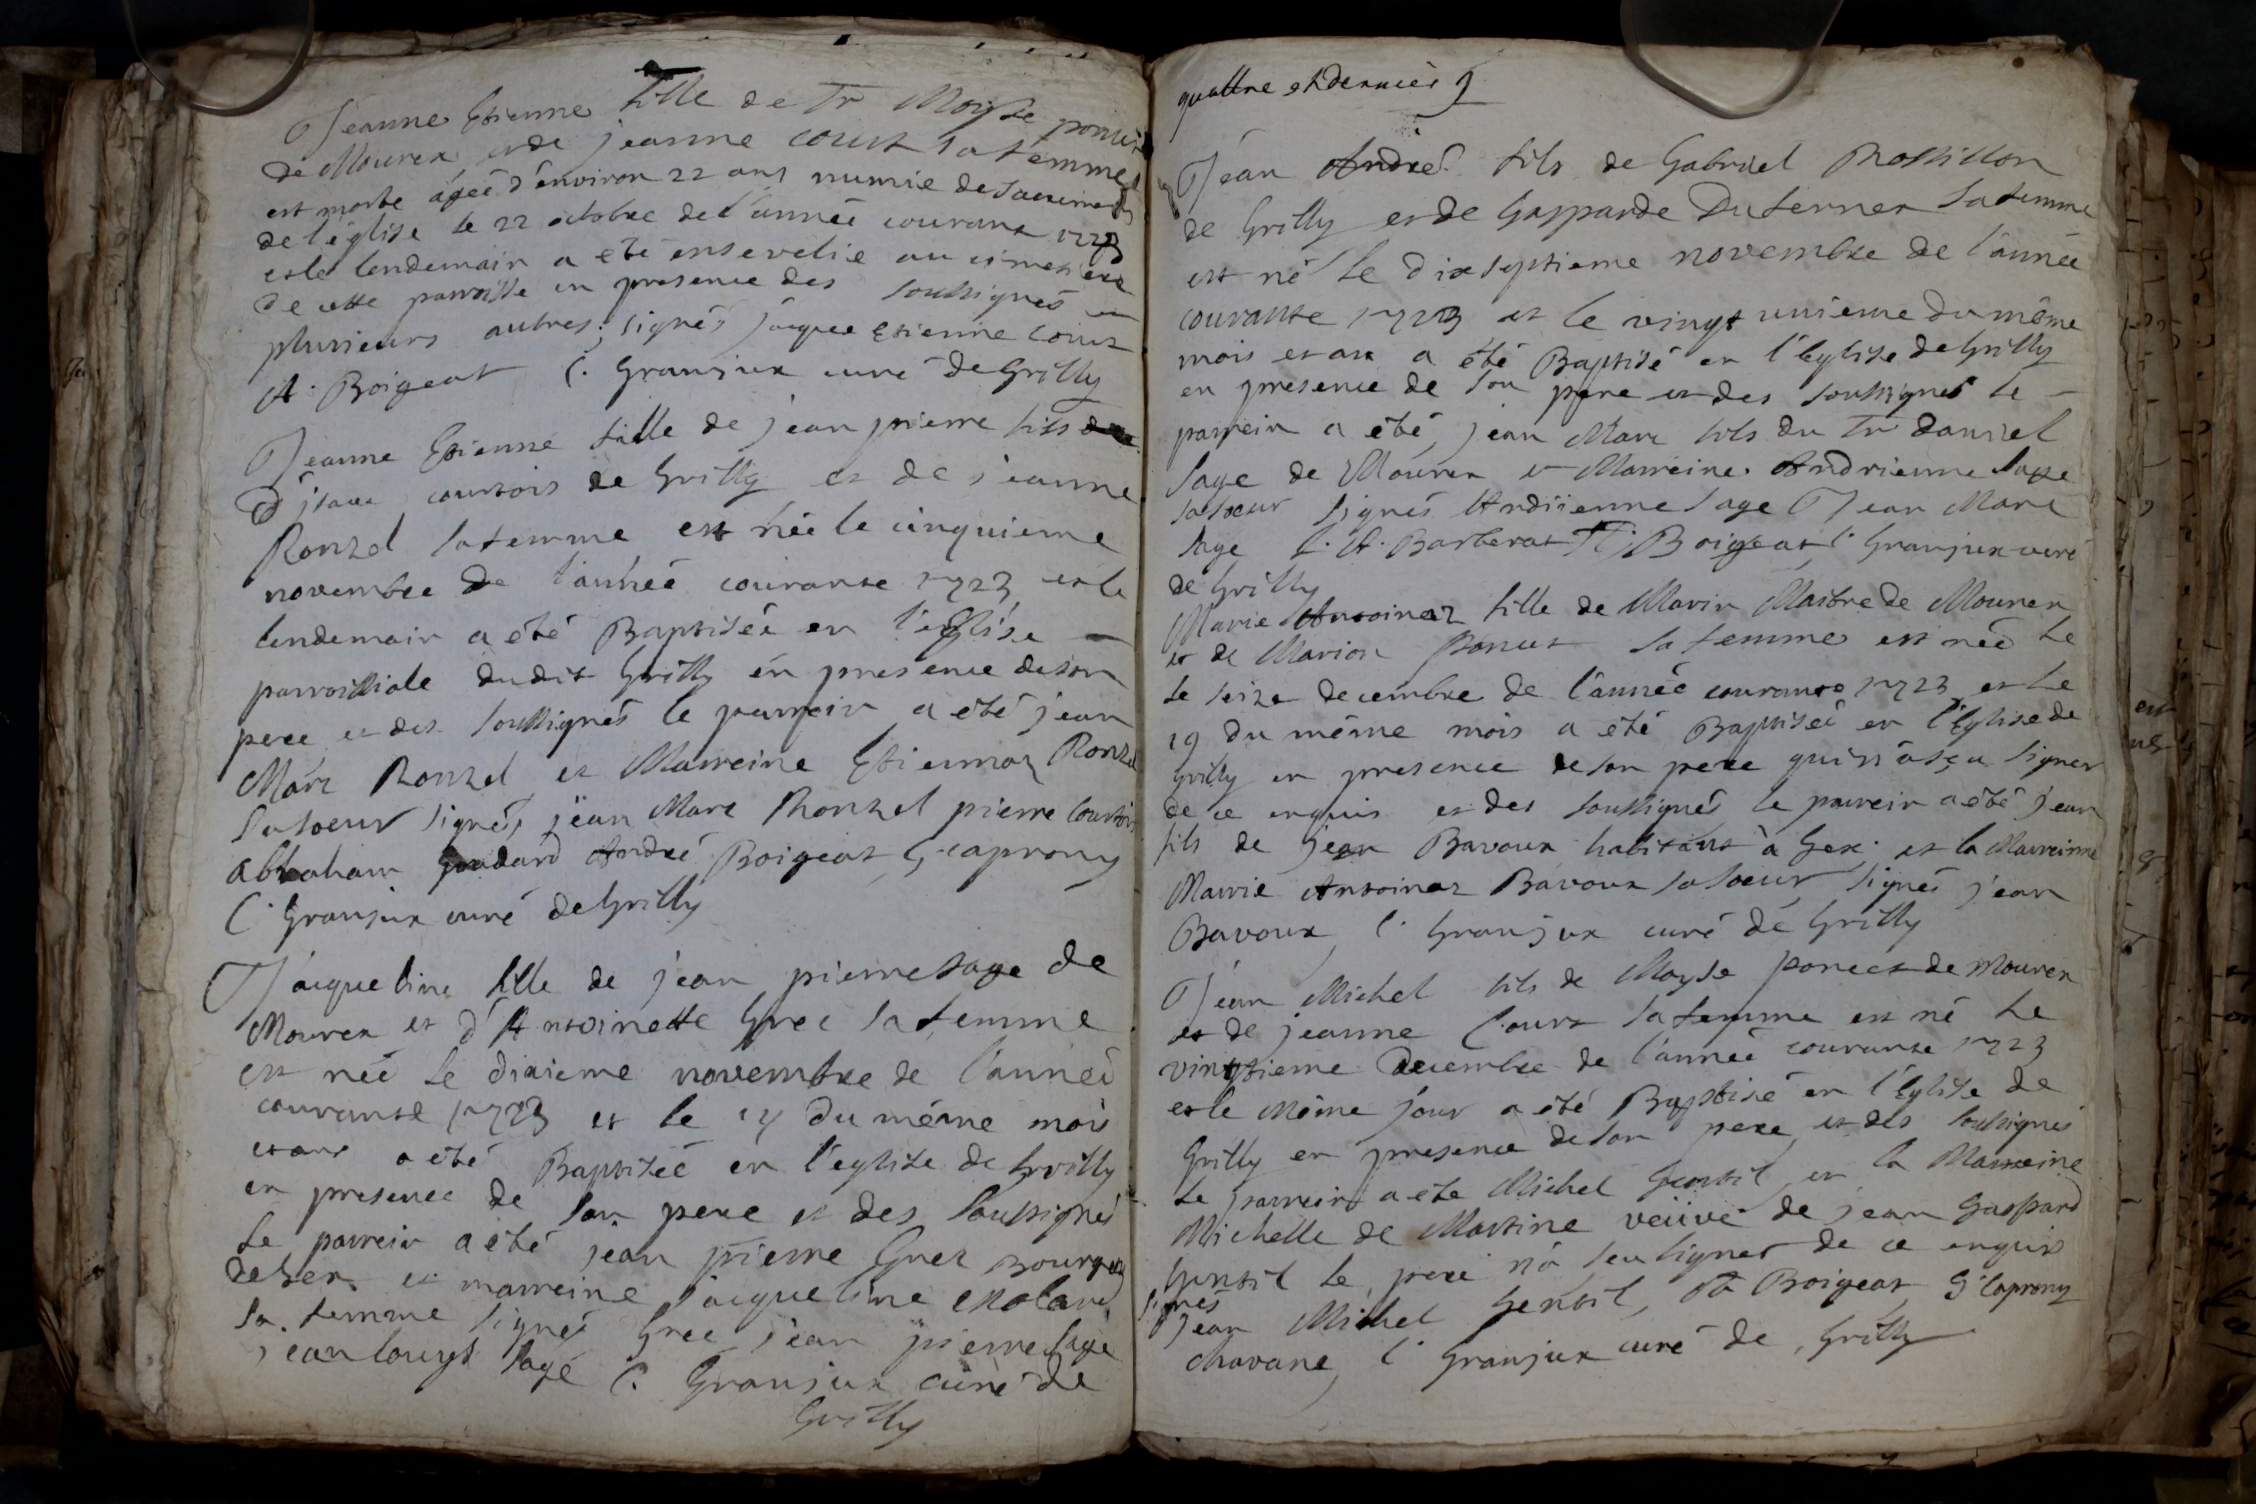 Jeanne Etienne fille de Tr Moyse poncet
de Mourex et de jeanne court sa femme
est morte agée d'environ 22 ans munie des sacrements
de l'église le 22 octobre de l'année courante 1723
et le lendemain a été ensevelie au cimetiere
de cette parroisse en presence des soussignés et
plusieurs autres; signés jaque Etienne court
A. Boigeat C. Granjux curé de Grilly
Jeanne Etienne fille de jean pierre fils
d'jsaac courtois de Grilly et de jeanne
Ronzel sa femme est née le cinquieme
novembre de l'année courante 1723 et le
lendemain a été Baptisée en l'église
parroissiale dudit Grilly en presence de son
pere et des soussignés le parrein a été jean
Marc Ronzel et Marreine Etiennaz Ronzel
sa soeur signés jean Marc Ronzel pierre Courtois
abraham Goudard André Boigeat G. caprony
C. Granjux curé de Grilly
Jaqueline fille de jean pierre sage de
Mourex et d'Antoinette Grec sa femme
est née le dixieme novembre de l'année
courante 1723 et le 14 du même mois
et an a été Baptisée en l'eglise de Grilly
en presence de son pere et des soussignés
Le parrein a été jean pierre Grec Bourgeois
de Gex et marreine jaqueline Molard
sa femme signés Grec jean pierre sage
jean louys sage C. Granjux curé de
Grilly
quattre et dernier
Jean André fils de Gabriel Rossillon
de Grilly et de Gasparde Duterner sa femme
est né le dixseptieme novembre de l'année
courante 1723 et le vingt unieme du même
mois et an a été Baptisé en l'Eglise de Grilly
en presence de son pere et des soussignés le
parrein a été jean Marc fils du Tr daniel
sage de Mourex et Marreine Andrienne sage
sa soeur signés Andrienne sage Jean Marc
sage A. Barberat Boigeat C. Granjux curé
de Grilly
Marie Antoinaz fille de Marin Maitre de Mourex
et de Marion Poncet sa femme est née le
le seize decembre de l'année courante 1723 et le
19 du même mois a été Baptisée en l'Eglise de
Grilly en presence de son pere qui n'a sçu signer
de ce enquis et des soussignés le parrein a été jean
fils de jean Bavoux habitant à Gex et la Marreinne
Marie Antoinaz Bavoux sa soeur signés jean
Bavoux C. Granjux curé de Grilly
Jean Michel fils de Moyse poncet de Mourex
et de jeanne Court sa femme est né le
vingtieme decembre de l'année courante 1723
et le Même jour a été Baptisé en l'Eglise de
Grilly en presence de son pere et des soussignés
le parrein a été Michel Gentil et la Marreine
Michelle de Martine veüve de jean Gaspard
Gentil le pere n'a seu signer de ce enquis
signés
Jean Michel Gentil, A Boigeat G. Caprony
chavane C. Granjux curé de Grilly